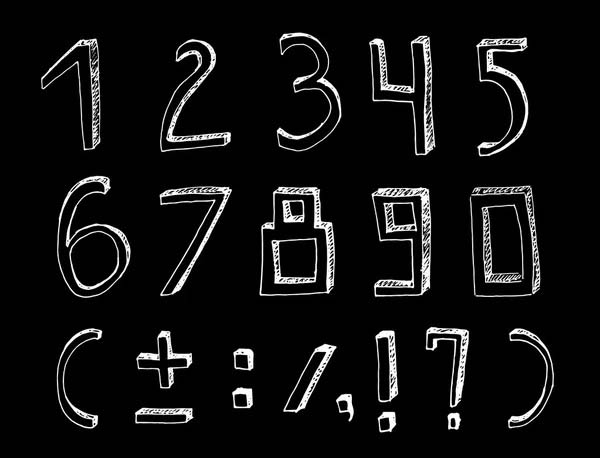 1 2 3 4 5
6 7 8 9 0
( ± : / , ! ? )